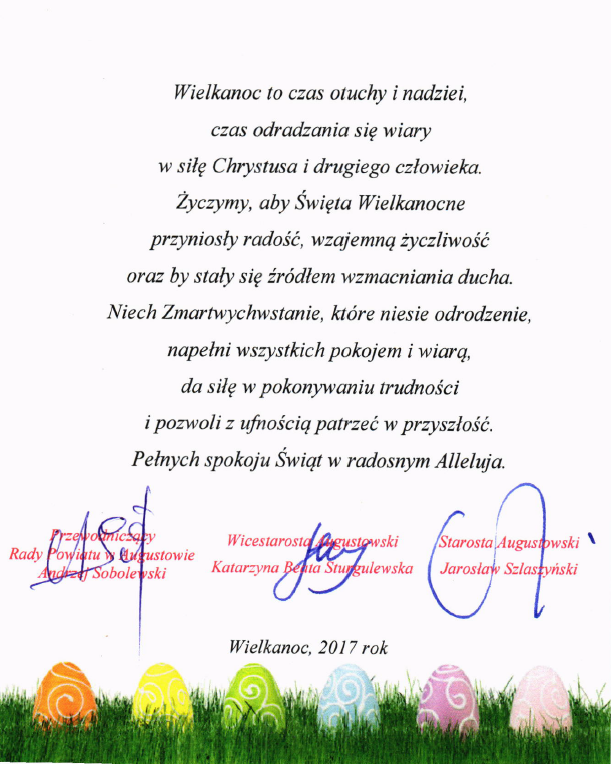 Wielkanoc to czas otuchy i nadziei,
czas odradzania się wiary
w siłę Chrystusa i drugiego człowieka.
Życzymy, aby Święta Wielkanocne
przyniosły radość, wzajemną życzliwość
oraz by stały się źródłem wzmacniania ducha.
Niech Zmartwychwstanie, które niesie odrodzenie,
napełni wszystkich pokojem i wiarą,
da siłę w pokonywaniu trudności
i pozwoli z ufnością patrzeć w przyszłość.
Pełnych spokoju Świąt w radosnym Alleluja.
Przewodniczący
Rady Powiatu w Augustowie
Andrzej Sobolewski
Wicestarosta Augustowski
Katarzyna Beata Sturgulewska
Starosta Augustowski
Jarosław Szlaszyński
Wielkanoc, 2017 rok